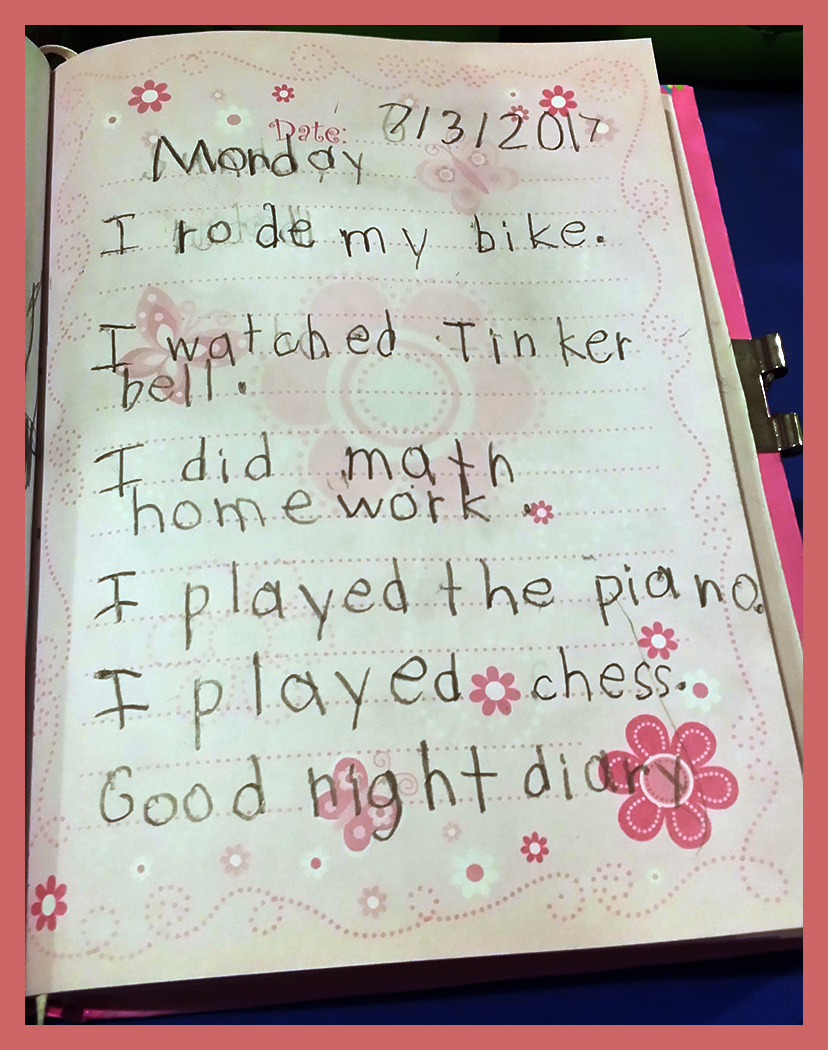 Date: 7/3/2017
Monday
I rode my bike.
I watched Tinker
bell.
I did math
homework.
I played the piano.
I played chess.
Good night diary